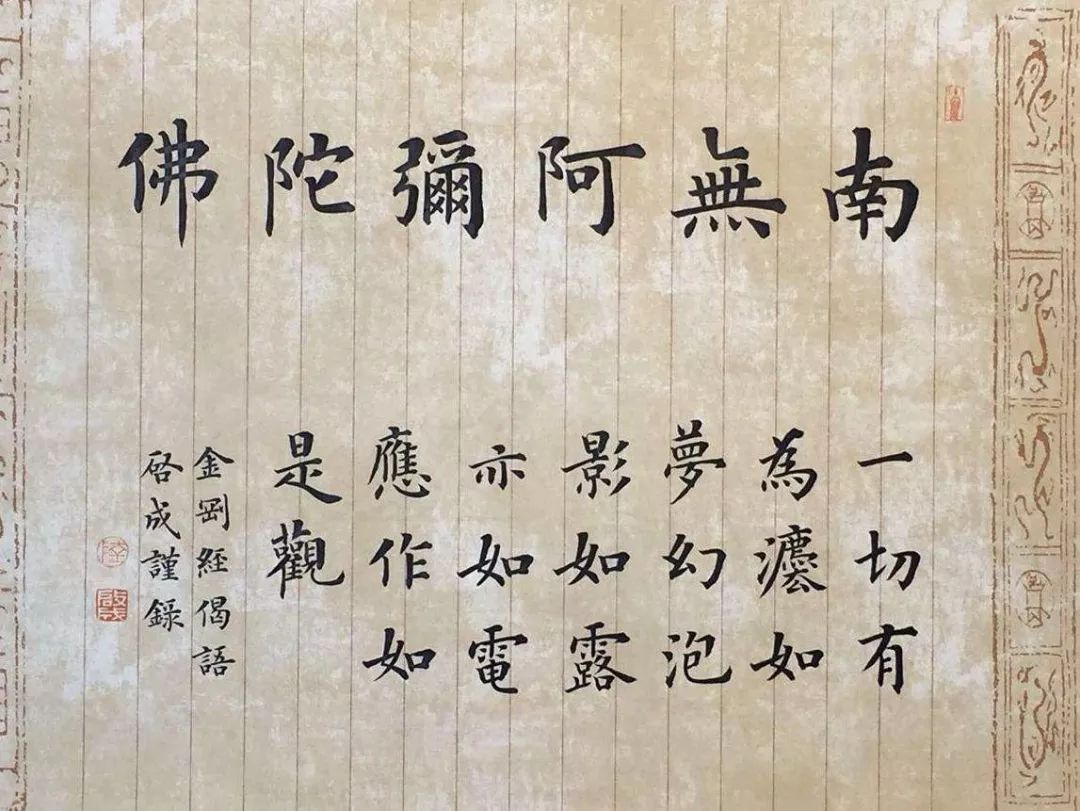 南無阿彌陀佛
一切有
為灋如
夢幻泡
影如露
亦如電
應作如
是觀
金剛經偈語
啓成謹錄
啟成